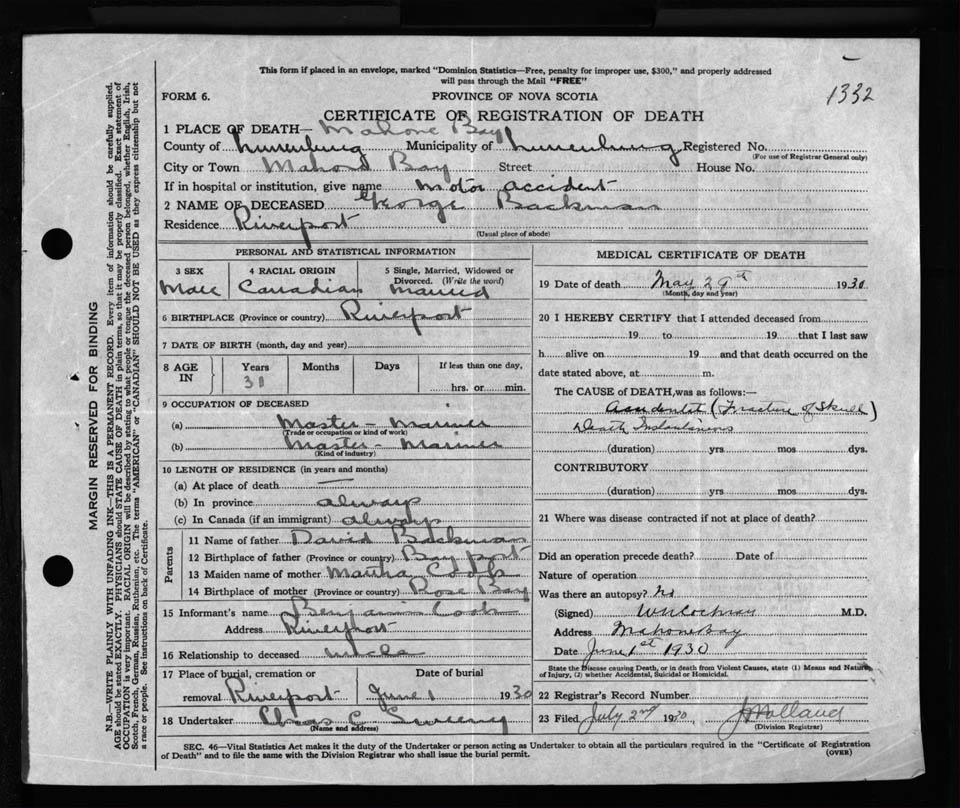 This form if placed in an envelope, marked "Dominion Statistics—Free, penalty for improper use, $300," and properly addressed
will pass through the Mail "FREE"
1332
FORM 6.
PROVINCE OF NOVA SCOTIA
CERTIFICATE OF REGISTRATION OF DEATH
1 PLACE OF DEATH— Mahone Bay
County of Lunenburg Municipality of Lunenburg Registered No.
(For use of Registrar General only)
City or Town Mahone Bay Street House No.
If in hospital or institution, give name Motor accident
2 NAME OF DECEASED George Backman
Residence Riverport
(Usual place of abode)
PERSONAL AND STATISTICAL INFORMATION
3 SEX 4 RACIAL ORIGIN 5 Single, Married, Widowed or
Divorced. (Write the word)
Male Canadian Married
6 BIRTHPLACE (Province or country) Riverport
7 DATE OF BIRTH (month, day and year)
8 AGE IN Years Months Days If less than one day,
31 hrs. or min.
9 OCCUPATION OF DECEASED
(a) Master - Mariner
(Trade or occupation or kind of work)
(b) Master - Mariner
(Kind of industry)
10 LENGTH OF RESIDENCE (in years and months)
(a) At place of death —
(b) In province always
(c) In Canada (if an immigrant) always
Parents
11 Name of father David Backman
12 Birthplace of father (Province or country) Bayport
13 Maiden name of mother Martha Cook
14 Birthplace of mother (Province or country) Rose Bay
15 Informant's name Benjamin Cook
Address Riverport
16 Relationship to deceased uncle
17 Place of burial, cremation or Date of burial
removal Riverport June 1 1930
18 Undertaker Chas C Sweeny
(Name and address)
MEDICAL CERTIFICATE OF DEATH
19 Date of death May 29th 1930
(Month, day and year)
20 I HEREBY CERTIFY that I attended deceased from
19 to 19 that I last saw
h alive on 19 and that death occurred on the
date stated above, at m.
The CAUSE OF DEATH, was as follows:—
Accidental (Fracture of Skull)
Death Instantaneous
(duration) yrs. mos. dys.
CONTRIBUTORY
(duration) yrs. mos. dys.
21 Where was disease contracted if not at place of death?
Did an operation precede death? Date of
Nature of operation
Was there an autopsy? No
(Signed) M.D.
Address Mahone Bay
Date June 1st 1930
State the Disease causing Death, or in death from Violent Causes, state (1) Means and Nature
of Injury, (2) whether Accidental, Suicidal or Homicidal.
22 Registrar's Record Number
23 Filed July 2nd 1930 J Holland
(Division Registrar)
SEC. 46—Vital Statistics Act makes it the duty of the Undertaker or person acting as Undertaker to obtain all the particulars required in the "Certificate of Registration
of Death" and to file the same with the Division Registrar who shall issue the burial permit.
(OVER)
MARGIN RESERVED FOR BINDING
N.B.—WRITE PLAINLY WITH UNFADING INK—THIS IS A PERMANENT RECORD. Every item of information should be carefully supplied.
AGE should be stated EXACTLY. PHYSICIANS should STATE CAUSE OF DEATH in plain terms, so that it may be properly classified. Exact statement of
OCCUPATION is very important. RACIAL ORIGIN will be described by stating to what people or tongue the deceased person belonged, whether English, Irish,
Scotch, French, German, Russian, Ruthenian, etc. The terms "AMERICAN" or "CANADIAN" SHOULD NOT BE USED as they express citizenship but not
a race or people. See instructions on back of Certificate.